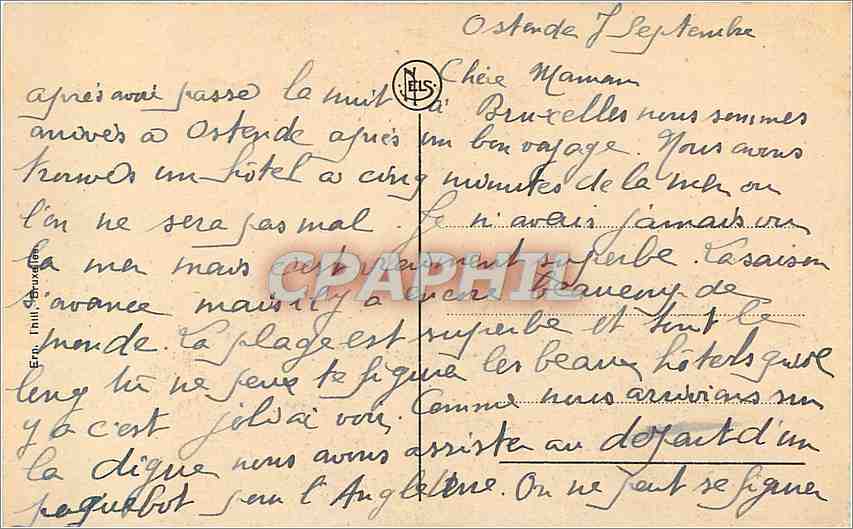 Ostende 7 Septembre
Chère Maman
après avoir passé la nuit à Bruxelles nous sommes
arrivés à Ostende après un bon voyage. Nous avons
trouvés un hôtel à cinq minutes de la mer ou
l'on ne sera pas mal. Je n'avais jamais vu
la mer mais c'est vraiment superbe. La saison
s'avance mais il y a encore beaucoup de
monde. La plage est superbe et tout le
long tu ne peux te figurer les beaux hôtels qu'il
y a c'est joli à voir. Comme nous arrivions sur
la digue nous avons assister au départ d'un
paquebot pour l'Angleterre. On ne peut se figurer
NELS
Ern. Thill, Bruxelles
CPAPHIL